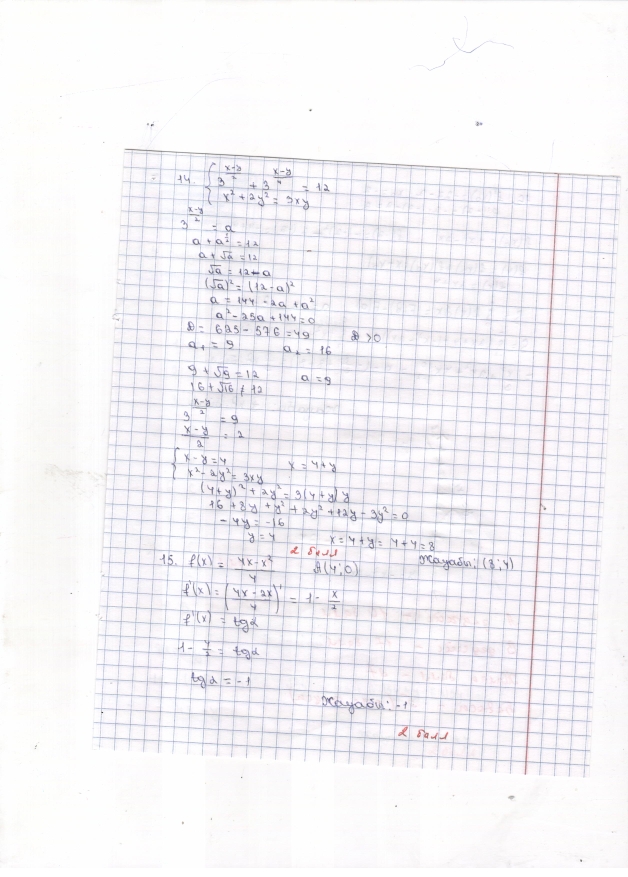 14. { 3^((x-y)/2) + 3^((x-y)/4) = 12
x² + 2y² = 3xy
3^((x-y)/2) = a
a + a^(1/2) = 12
a + √a = 12
√a = 12 - a
(√a)² = (12 - a)²
a = 144 - 24 + a²
a² - 25a + 144 = 0
D = 625 - 576 = 49 D > 0
a₁ = 9 a₂ = 16
9 + √9 = 12 a = 9
16 + √16 ≠ 12
3^((x-y)/2) = 9
(x-y)/2 = 2
{ x - y = 4 x = 4 + y
x² - 2y² = 3xy
(4+y)² + 2y² = 3(4+y)y
16 + 8y + y² + 2y² + 12y - 3y² = 0
- 4y = -16
y = 4 x = 4 + y = 4 + 4 = 8
2 балл Жауабы: (8; 4)
15. f(x) = (4x - x²)/4 A(4; 0)
f'(x) = ((4x - 2x)/4)' = 1 - x/2
f'(x) = tgα
1 - 4/2 = tgα
tgα = -1
Жауабы: -1
2 балл